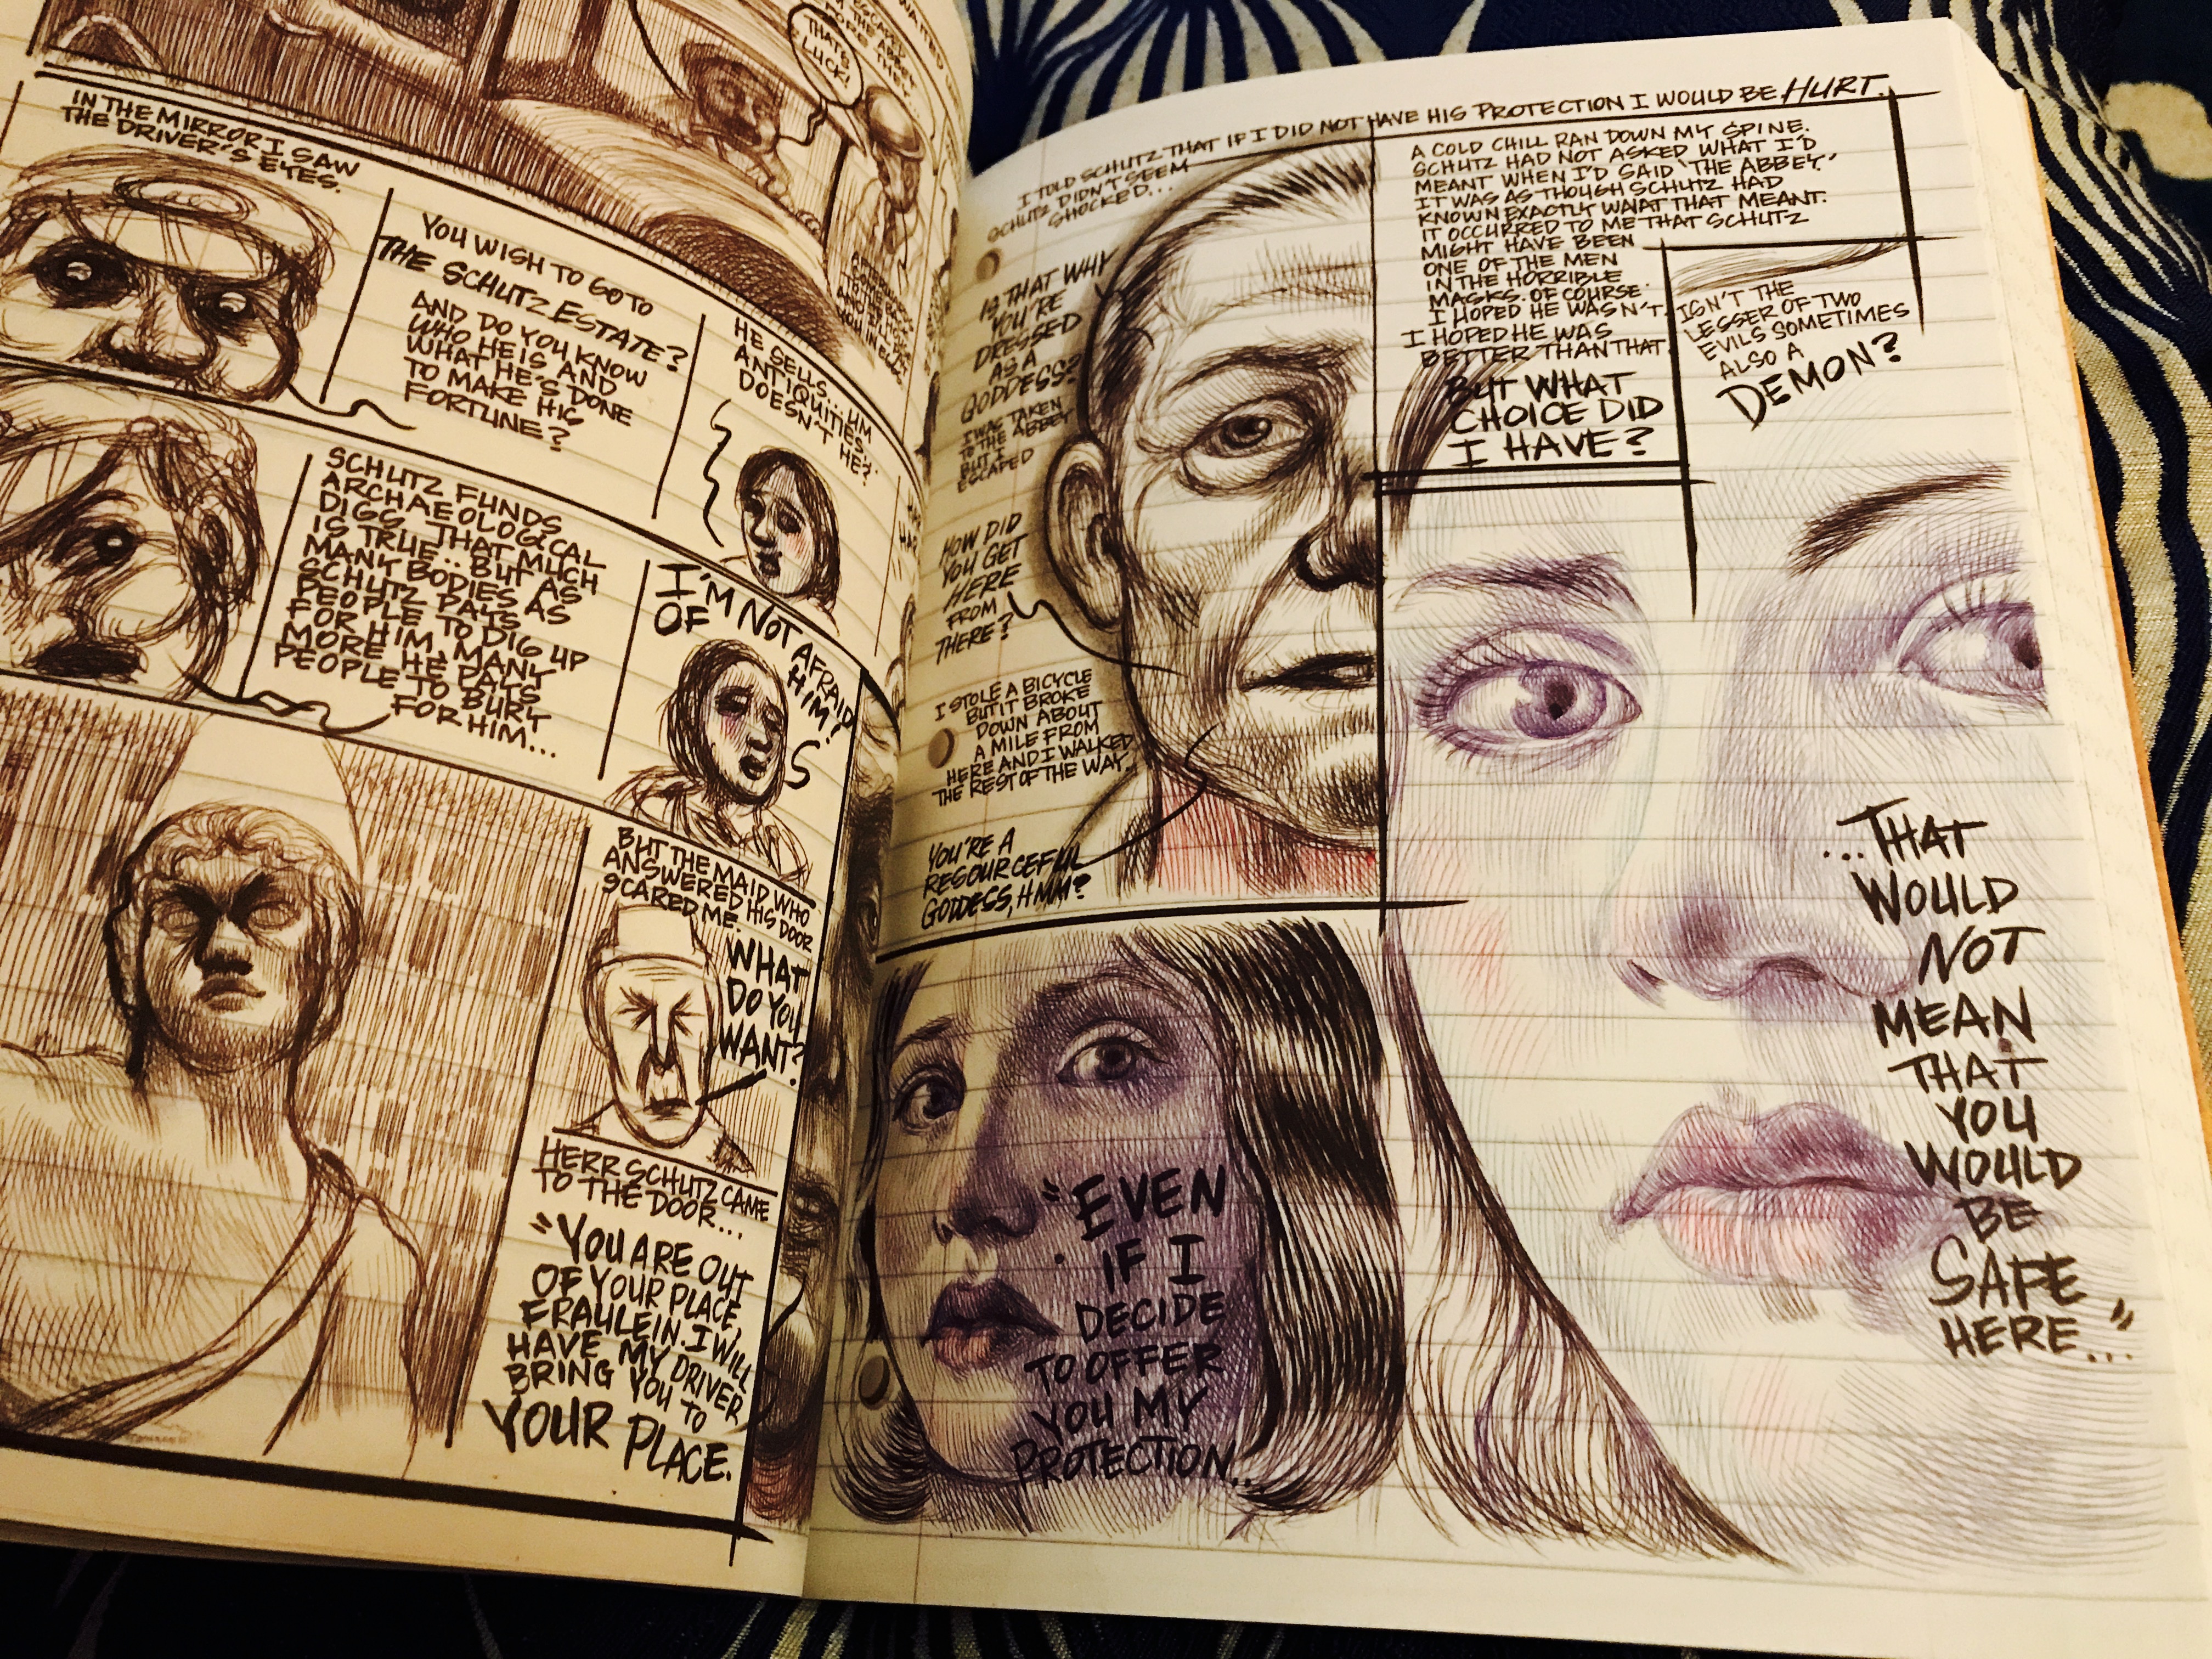 WANTED
THAT'S
LUCK!
IN THE MIRROR I SAW
THE DRIVER'S EYES.
YOU WISH TO GO TO
THE SCHUTZ ESTATE?
AND DO YOU KNOW
WHO HE IS AND
WHAT HE'S DONE
TO MAKE HIS
FORTUNE?
HE SELLS... UM
ANTIQUITIES...
DOESN'T HE?
SCHUTZ FUNDS
ARCHAEOLOGICAL
DIGS. THAT MUCH
IS TRUE... BUT AS
MANY BODIES AS
SCHUTZ PAYS
PEOPLE TO DIG UP
FOR HIM, MANY
MORE HE PAYS
PEOPLE TO BURY
FOR HIM...
I'M NOT AFRAID
OF HIM!
BUT THE MAID WHO
ANSWERED HIS DOOR
SCARED ME.
WHAT
DO YOU
WANT?
HERR SCHUTZ CAME
TO THE DOOR...
"YOU ARE OUT
OF YOUR PLACE,
FRAULEIN. I WILL
HAVE MY DRIVER
BRING YOU TO
YOUR PLACE.
I TOLD SCHUTZ THAT IF I DID NOT HAVE HIS PROTECTION I WOULD BE HURT.
SCHUTZ DIDN'T SEEM
SHOCKED...
IS THAT WHY
YOU'RE
DRESSED
AS A
GODDESS?
I WAS TAKEN
TO THE ABBEY
BUT I
ESCAPED
HOW DID
YOU GET
HERE
FROM
THERE?
I STOLE A BICYCLE
BUT IT BROKE
DOWN ABOUT
A MILE FROM
HERE AND I WALKED
THE REST OF THE WAY.
YOU'RE A
RESOURCEFUL
GODDESS, HMM?
A COLD CHILL RAN DOWN MY SPINE.
SCHUTZ HAD NOT ASKED WHAT I'D
MEANT WHEN I'D SAID 'THE ABBEY.'
IT WAS AS THOUGH SCHUTZ HAD
KNOWN EXACTLY WHAT THAT MEANT.
IT OCCURRED TO ME THAT SCHUTZ
MIGHT HAVE BEEN
ONE OF THE MEN
IN THE HORRIBLE
MASKS. OF COURSE
I HOPED HE WASN'T.
I HOPED HE WAS
BETTER THAN THAT
BUT WHAT
CHOICE DID
I HAVE?
ISN'T THE
LESSER OF TWO
EVILS SOMETIMES
ALSO A
DEMON?
"EVEN
IF I
DECIDE
TO OFFER
YOU MY
PROTECTION...
...THAT
WOULD
NOT
MEAN
THAT
YOU
WOULD
BE
SAFE
HERE..."